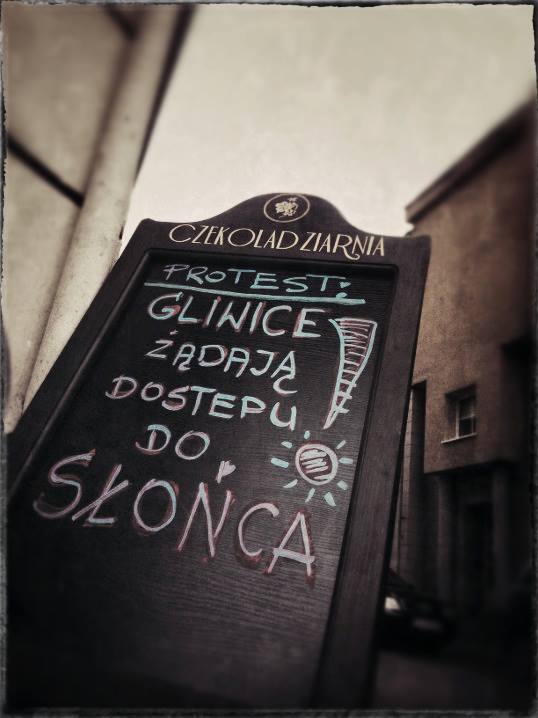 CZEKOLADZIARNIA
PROTEST:
GLIWICE
ŻĄDAJĄ
DOSTEPU
DO
SŁOŃCA!